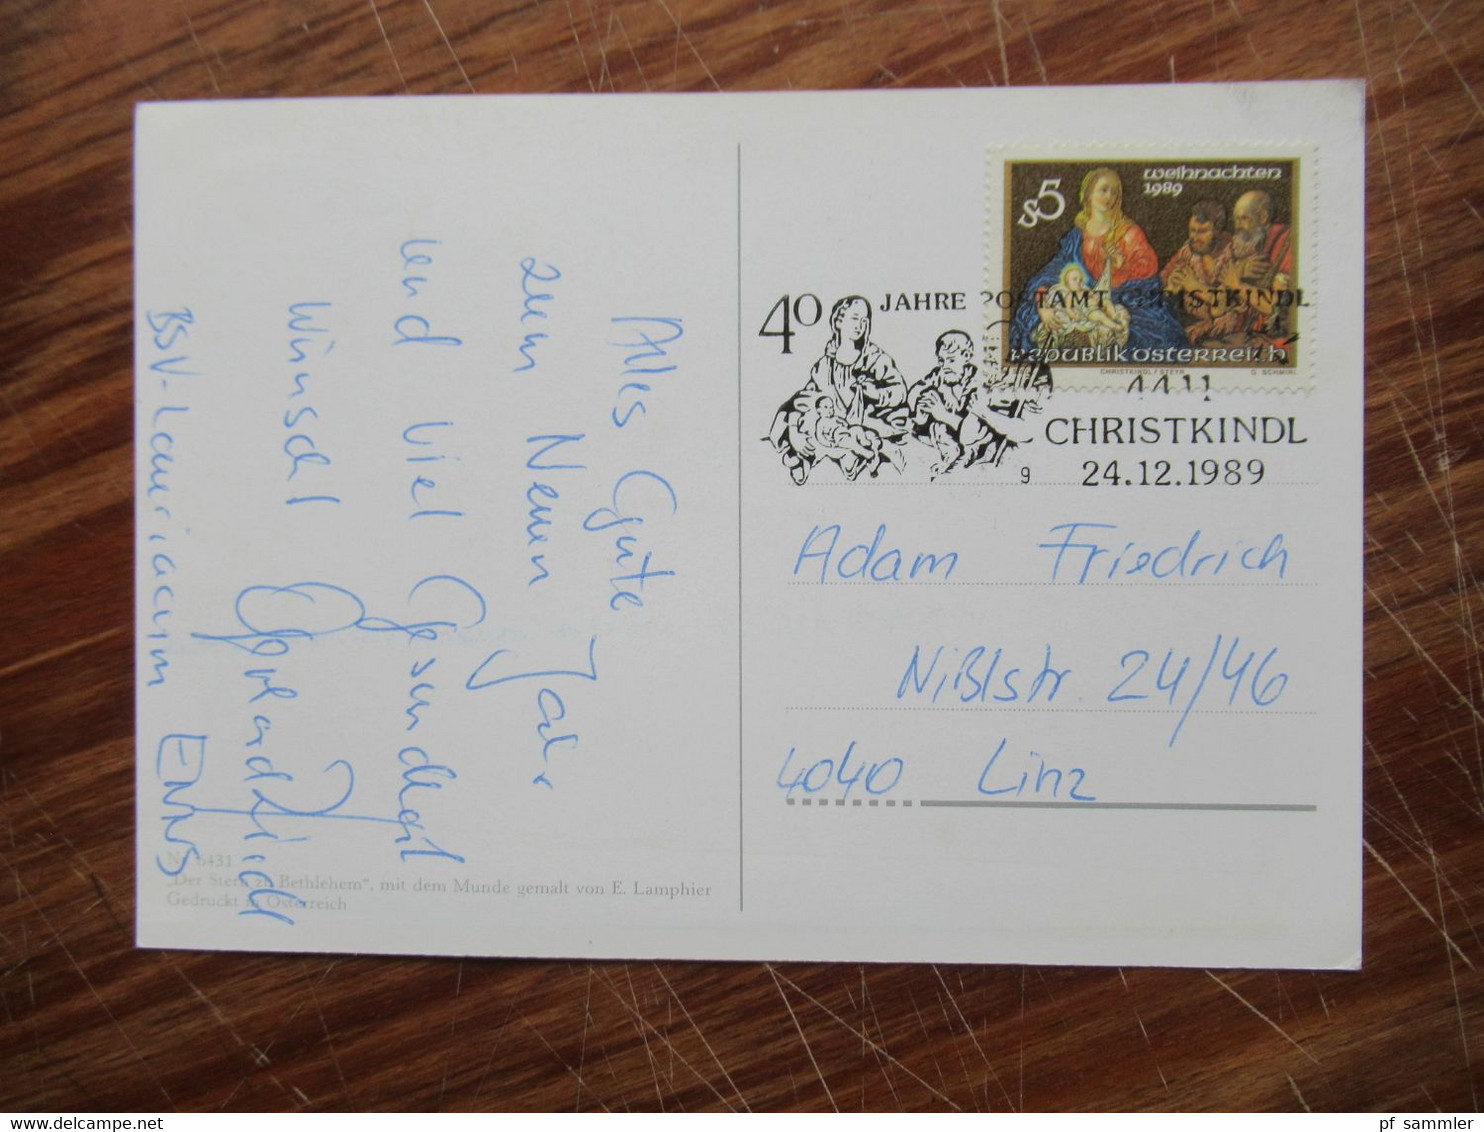 Alles Gute
zum Neuen Jahr
und viel Gesundheit
wünscht
BSV-Lauriacum ENNS
Nr. 6431
„Der Stern zu Bethlehem“, mit dem Munde gemalt von E. Lamphier
Gedruckt in Österreich
s5
weihnachten
1989
Republik österreich
CHRISTKINDL / STEYR
G. SCHMIRL
40 JAHRE POSTAMT CHRISTKINDL
4411
CHRISTKINDL
9 24.12.1989
Adam Friedrich
Nißlstr. 24/46
4040 Linz
pf sammler